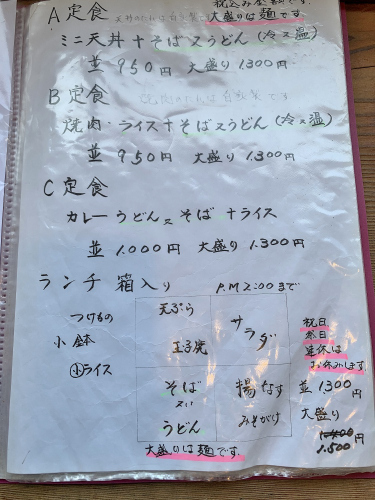 税込み金額です。
A定食 天丼のたれは自家製です 大盛りは麺です。
ミニ天丼+そば又うどん(冷又温)
並 950円 大盛り 1.300円
B定食 焼肉のたれは自家製です
焼肉・ライス+そば又うどん(冷又温)
並 950円 大盛り 1.300円
C定食
カレーうどん又そば+ライス
並 1.000円 大盛り 1.300円
ランチ箱入り P.M2:00まで
つけもの
小鉢
小ライス
天ぷら
玉子焼
サラダ
そば
又は
うどん
揚なす
みそがけ
大盛りは麺です。
祝日
祭日
連休は
お休みします
並 1,300
大盛り
1.500